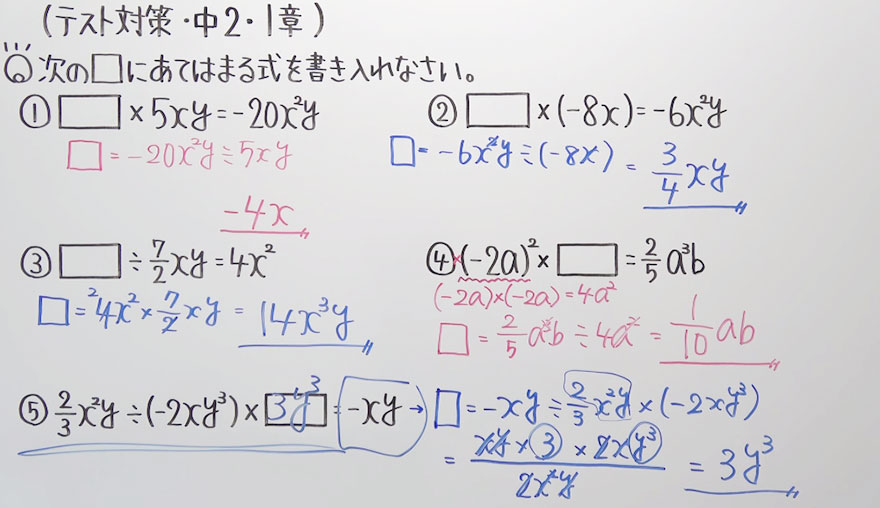 (テスト対策・中2・1章)
次の□にあてはまる式を書き入れなさい。
① □ × 5xy = -20x²y
□ = -20x²y ÷ 5xy
-4x
② □ × (-8x) = -6x²y
□ = -6x²y ÷ (-8x) = 3/4 xy
③ □ ÷ 7/2 xy = 4x²
□ = ²4x² × 7/2 xy = 14x³y
④ (-2a)² × □ = 2/5 a³b
(-2a)×(-2a) = 4a²
□ = 2/5 a³b ÷ 4a² = 1/10 ab
⑤ 2/3 x²y ÷ (-2xy³) × 3y³ = -xy → □ = -xy ÷ 2/3 x²y × (-2xy³)
= xy × 3 × 2xy³ / 2x²y = 3y³